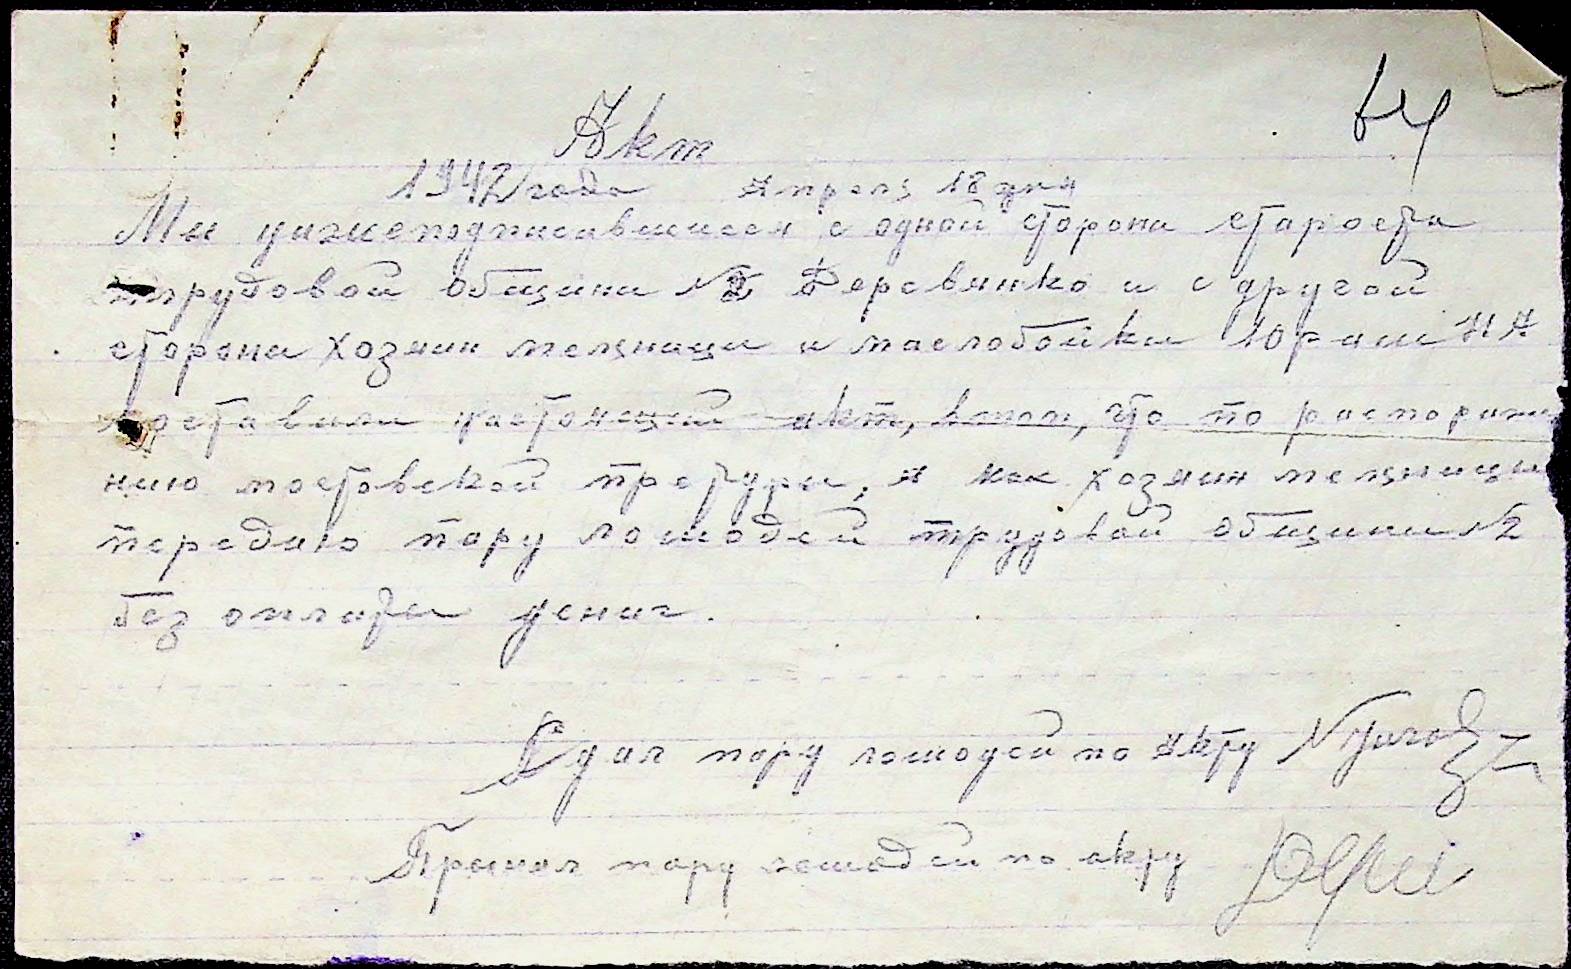 64
Акт
1942 года Апрель 18 дня
Ми нижеподписавшиеся с одной сторони староста
трудовой общини №2 Деревянко и с другой
сторони хозяин мелници и маслобойки
составили настоящий акт, в том, что по распоряже
нию мостовской претури, я как хозяин мелници
передаю пару лошадей трудовой общини №2
без оплати дениг.
Сдал пару лошадей по акту
Принял пару лошадей по акту